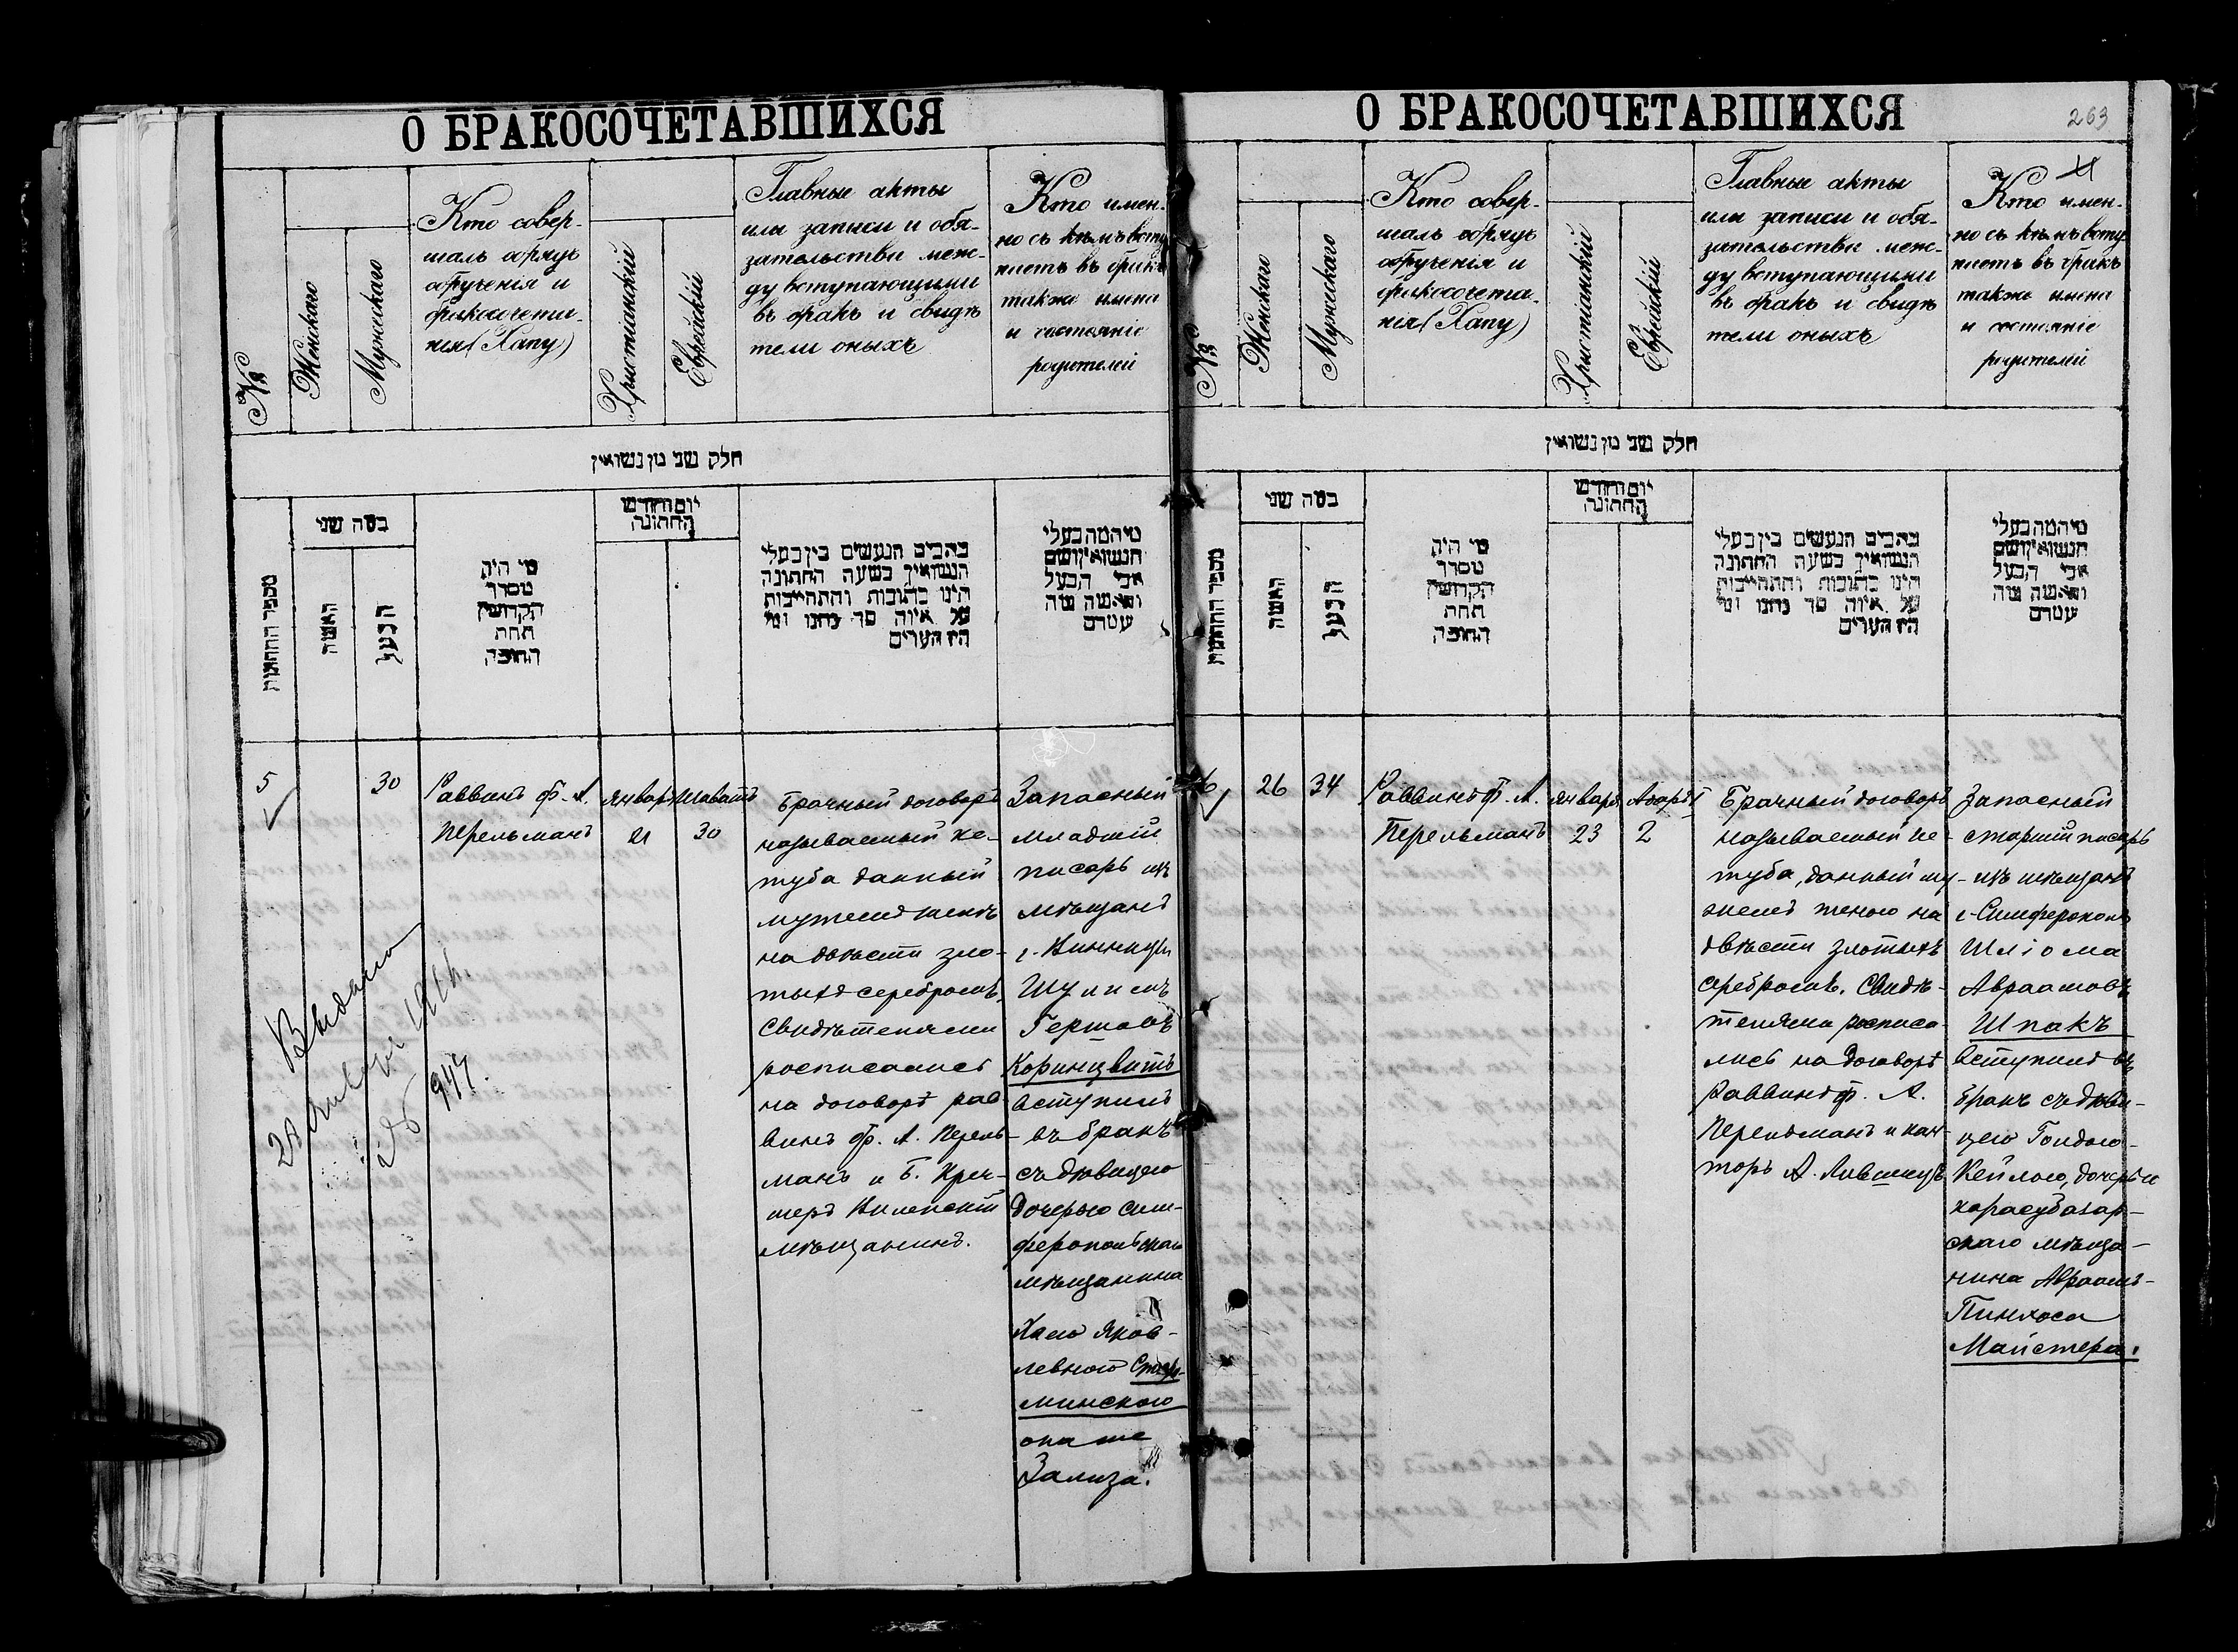 О БРАКОСОЧЕТАВШИХСЯ
№
Женскаго
Мужескаго
Кто совер-
шалъ обрядъ
обрученія и
бракосочета-
нія (Хапу)
Христіанскій
Еврейскій
Главные акты
или записи и обя-
зательства меж-
ду вступающими
въ бракъ и свидѣ
тели оныхъ
Кто имен-
но съ кѣмъ всту
паетъ въ бракъ
также имена
и состояніе
родителей
חלק שני מן נשואין
מספר החתונות
כמה שני
האשה
הבעל
מי היה
מסדר
הקדושין
תחת
החופה
יום וחודש
החתונה
כתבים הנעשים בין בעלי
הנשואין בשעה החתונה
היינו כתובות והתחייבות
על איזה סך נתנו ומי
הי׳ העדים
מי המה בעלי
הנשואין ושם
אבי הבעל
והאשה מה
עמדם
5
30
Раввинъ Ф. А.
Перельманъ
Январь
21
Шаватъ
30
Брачный договоръ
называемый ке-
туба данный
мужемъ женѣ
на двѣсти зло-
тыхъ серебромъ,
Свидѣтелями
росписались
на договорѣ рав
винъ Ф. А. Перель-
манъ и Б. Креч-
меръ Виленскій
мѣщанинъ.
Запасный
младшій
писарь изъ
мѣщанъ
г. Винницы
Шулимъ
Гершовъ
Корницвитъ
вступилъ
въ бракъ
съ дѣвицею
дочерью сим-
феропольскаго
мѣщанина
Хаею Яков-
левною
минскою
она же
Зализа.
Выдана
28 Января 1914.
№ 944.
О БРАКОСОЧЕТАВШИХСЯ
263
№
Женскаго
Мужескаго
Кто совер-
шалъ обрядъ
обрученія и
бракосочета-
нія (Хапу)
Христіанскій
Еврейскій
Главные акты
или записи и обя-
зательства меж-
ду вступающими
въ бракъ и свидѣ
тели оныхъ
Кто имен-
но съ кѣмъ всту
паетъ въ бракъ
также имена
и состояніе
родителей
חלק שני מן נשואין
מספר החתונות
כמה שני
האשה
הבעל
מי היה
מסדר
הקדושין
תחת
החופה
יום וחודש
החתונה
כתבים הנעשים בין בעלי
הנשואין בשעה החתונה
היינו כתובות והתחייבות
על איזה סך נתנו ומי
הי׳ העדים
מי המה בעלי
הנשואין ושם
אבי הבעל
והאשה מה
עמדם
6
26
34
Раввинъ Ф. А.
Перельманъ
Января
23
Адаръ I
2
Брачный договоръ
называемый ке-
туба, данный му-
жемъ женою на
двѣсти злотыхъ
серебромъ. Свидѣ-
телями росписа-
лись на договорѣ
Раввинъ Ф. А.
Перельманъ и кан-
торъ А. Лившицъ
Запасный
старшій писарь
изъ мѣщанъ
г. Симферополь
Шліома
Авраамовъ
Шпакъ
вступилъ въ
бракъ съ дѣви-
цею Голдою-
Кейлою, дочерью
карасубазар-
скаго мѣща-
нина Авраамъ-
Пинхоса
Майстера.